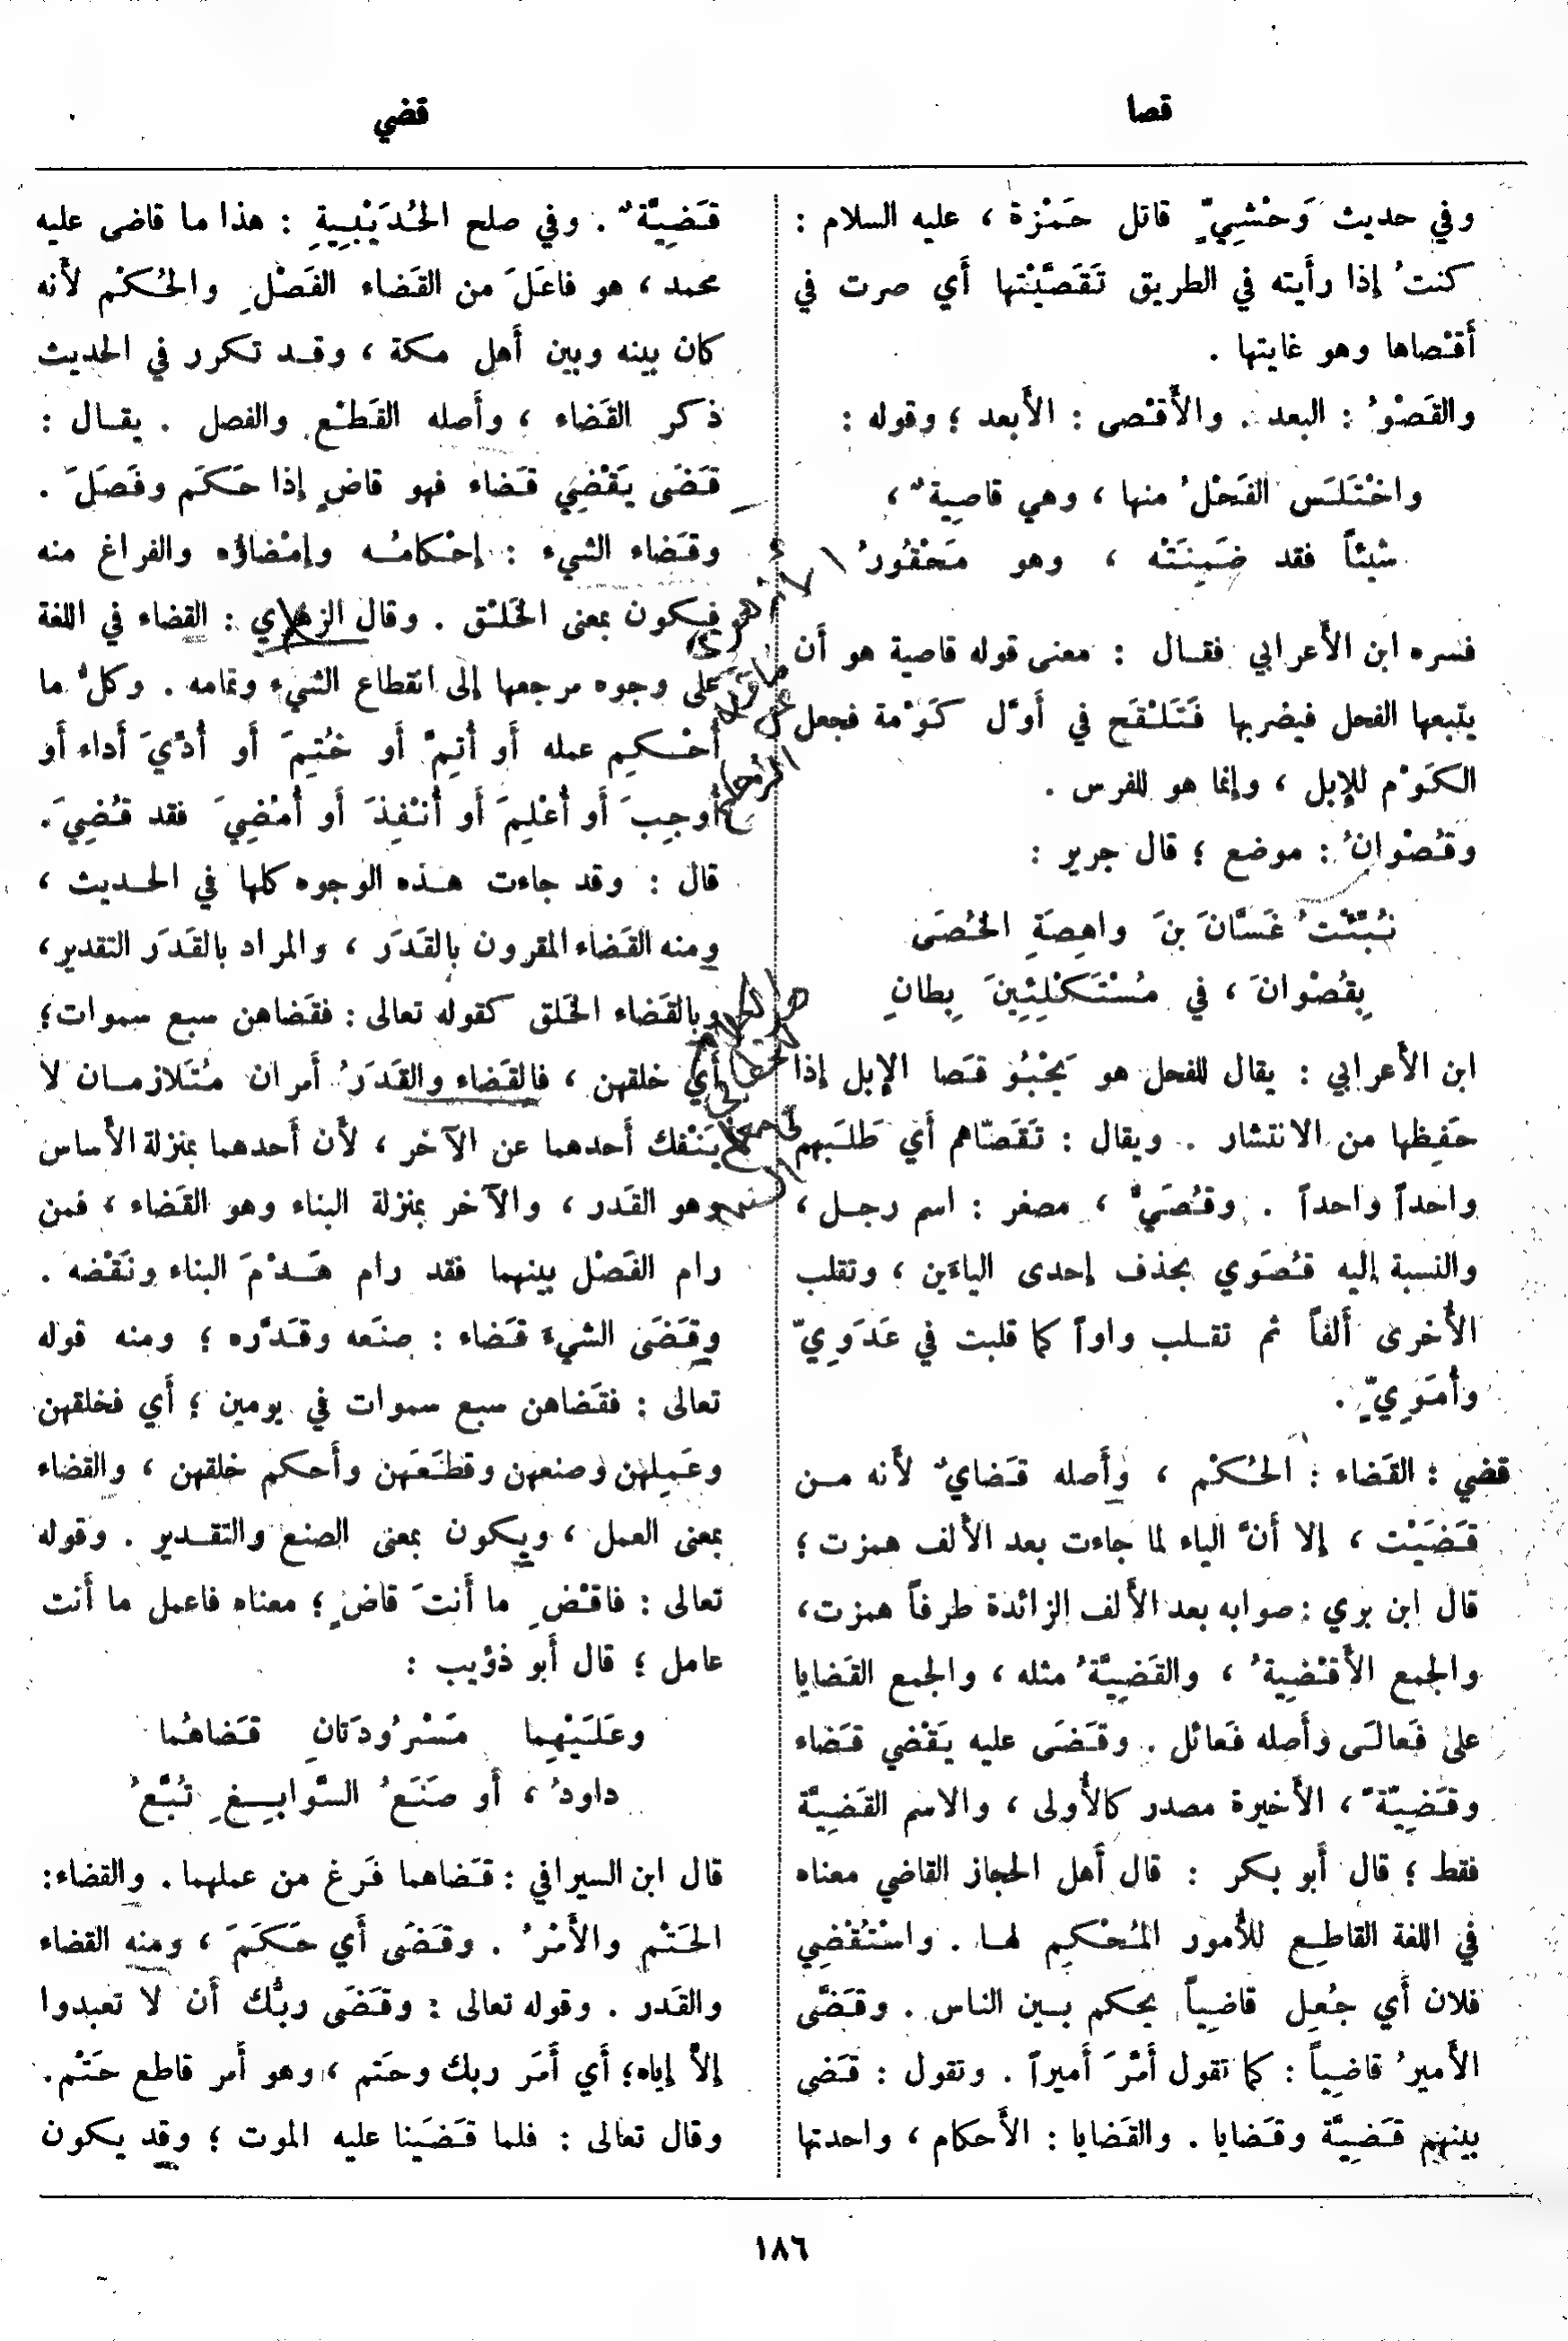 قصا
قضي
وفي حديث وَحْشِيٍّ قاتل حَمْزة ، عليه السلام :
كنتُ إذا رأَيته في الطريق تَقَصَّيْتها أَي صرت في
أَقْصاها وهو غايتها .
والقَصْوُ : البعد . والأَقْصى : الأَبعد ؛ وقوله :
واخْتَلَس الفَحْلُ منها ، وهي قاصِيةٌ ،
شيْئاً فقد ضَمِنَتْه ، وهو مَحْقُورُ
فسره ابن الأَعرابي فقال : معنى قوله قاصية هو أَن
يتبعها الفحل فيضربها فَتَلْقَح في أَوَّل كَوْمة فجعل
الكَوْم للإِبل ، وإنما هو للفرس .
وقُصْوانُ : موضع ؛ قال جرير :
نُبِّئْتُ غَسَّانَ بنَ واهِصَةِ الخُصَى
بِقُصْوانَ ، في مُسْتَكْلِئِينَ بِطانِ
ابن الأَعرابي : يقال للفحل هو يَحْبُو قَصا الإِبل إذا
حَفِظها من الانتشار . ويقال : تَقَصّاهم أَي طَلَبهم
واحداً واحداً . وقُصَيٌّ ، مصغر : اسم رجل ،
والنسبة إليه قُصَوي بحذف إحدى الياءَين ، وتقلب
الأُخرى أَلفاً ثم تقلب واواً كما قلبت في عَدَوِيّ
وأُمَوِيٍّ .
قضي : القَضاء : الحُكْم ، وأَصله قَضايٌ لأَنه من
قَضَيْت ، إلا أَنَّ الياء لما جاءت بعد الأَلف همزت ؛
قال ابن بري : صوابه بعد الأَلف الزائدة طرفاً همزت ،
والجمع الأَقْضِيةُ ، والقَضِيَّةُ مثله ، والجمع القَضايا
على فَعالَى وأَصله فَعائل . وقَضَى عليه يَقْضي قَضاء
وقَضِيّةً ، الأَخيرة مصدر كالأُولى ، والاسم القَضِيَّة
فقط ؛ قال أَبو بكر : قال أَهل الحجاز القاضي معناه
في اللغة القاطِع للأُمور المُحْكِم لها . واسْتُقْضِي
فلان أَي جُعِل قاضِياً يحكم بين الناس . وقَضَّى
الأَميرُ قاضِياً : كما تقول أَمَّرَ أَميراً . وتقول : قَضى
بينهم قَضِيَّة وقَضايا . والقَضايا : الأَحكام ، واحدتها
قَضِيَّةٌ . وفي صلح الحُدَيْبِيةِ : هذا ما قاضى عليه
محمد ، هو فاعَلَ من القَضاء الفَصْلِ والحُكْم لأَنه
كان بينه وبين أَهل مكة ، وقد تكرر في الحديث
ذكر القَضاء ، وأَصله القَطْع والفصل . يقال :
قَضَى يَقْضِي قَضاء فهو قاضٍ إذا حَكَم وفَصَلَ .
وقَضاء الشيء : إحْكامُه وإمْضاؤُه والفراغ منه
فيكون بمعنى الخَلْق . وقال الزهري : القضاء في اللغة
على وجوه مرجعها إلى انقطاع الشيء وتمامه . وكلُّ ما
أُحْكِم عمله أَو أُتِمَّ أَو خُتِمَ أَو أُدِّيَ أَداء أَو
أُوجِبَ أَو أُعْلِمَ أَو أُنْفِذَ أَو أُمْضِيَ فقد قُضِيَ .
قال : وقد جاءت هذه الوجوه كلها في الحديث ،
ومنه القَضاء المقرون بالقَدَر ، والمراد بالقَدَر التقدير ،
وبالقَضاء الخَلق كقوله تعالى : فقَضاهن سبع سموات ؛
أَي خلقهن ، فالقَضاء والقَدَرُ أَمران مُتَلازمان لا
يَنْفك أَحدهما عن الآخر ، لأَن أَحدهما بمنزلة الأَساس
وهو القَدر ، والآخر بمنزلة البناء وهو القَضاء ، فمن
رام الفَصْل بينهما فقد رام هَدْمَ البناء ونَقْضه .
وقَضَى الشيءَ قَضاء : صنَعه وقَدَّره ؛ ومنه قوله
تعالى : فقَضاهن سبع سموات في يومين ؛ أَي فخلقهن
وعَمِلهن وصنعهن وقطَعَهن وأَحكم خلقهن ، والقضاء
بمعنى العمل ، ويكون بمعنى الصنع والتقدير . وقوله
تعالى : فاقْضِ ما أَنتَ قاضٍ ؛ معناه فاعمل ما أَنت
عامل ؛ قال أَبو ذؤيب :
وعَلَيْهِما مَسْرُودَتانِ قَضاهُما
داودُ ، أَو صَنَعُ السَّوابِغِ تُبَّعُ
قال ابن السيرافي : قَضاهما فَرغ من عملهما . والقضاء :
الحَتْم والأَمْرُ . وقَضَى أَي حَكَمَ ، ومنه القضاء
والقَدر . وقوله تعالى : وقَضَى ربُّك أَن لا تعبدوا
إلاَّ إياه ؛ أَي أَمَر ربك وحَتم ، وهو أَمر قاطع حَتْم .
وقال تعالى : فلما قَضَينا عليه الموت ؛ وقد يكون
١٨٦